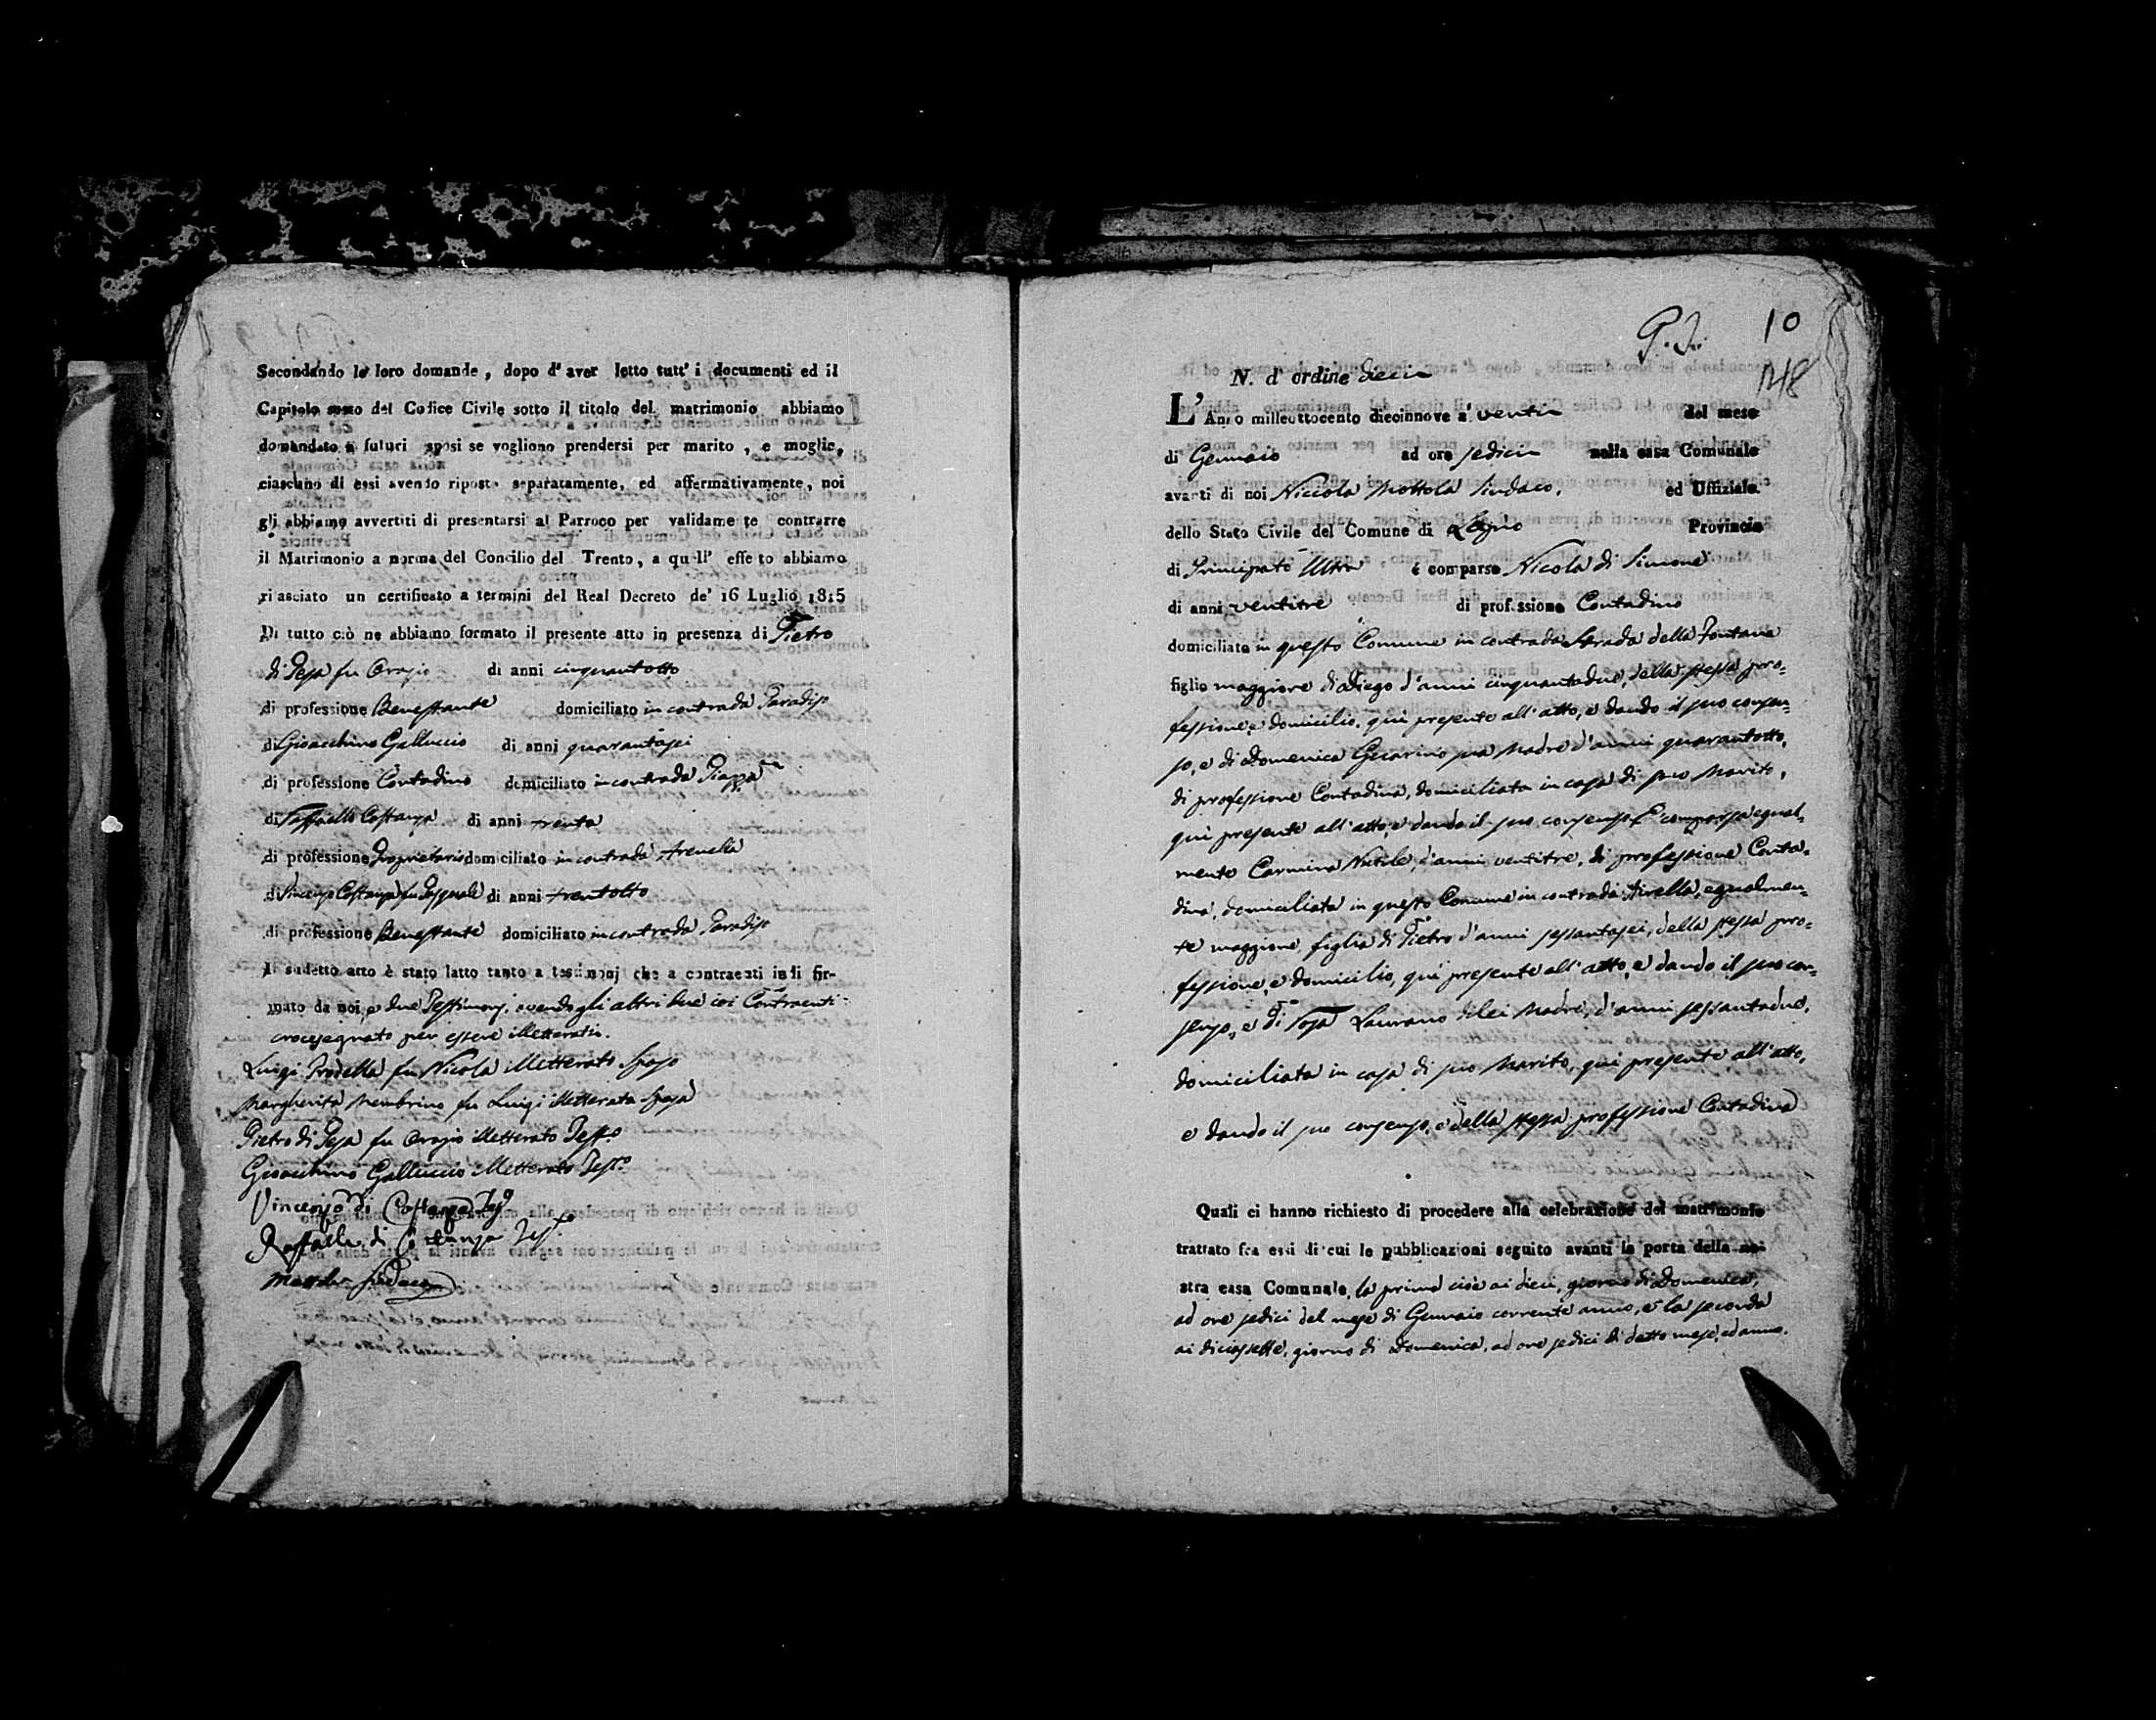 Secondando le loro domande, dopo d' aver letto tutt' i documenti ed il
Capitolo sesto del Codice Civile sotto il titolo del matrimonio abbiamo
domandato a futuri sposi se vogliono prendersi per marito, e moglie,
ciascuno di essi avendo riposto separatamente, ed affermativamente, noi
gli abbiamo avvertiti di presentarsi al Parroco per validamente contrarre
il Matrimonio a norma del Concilio del Trento, a quell' effetto abbiamo
rilasciato un certificato a termini del Real Decreto de' 16 Luglio 1815
Di tutto ciò ne abbiamo formato il presente atto in presenza di Pietro
di Pesa fu Orazio di anni cinquantotto
di professione Benestante domiciliato in contrada Paradiso
di Gioacchino Galluccio di anni quarantasei
di professione Contadino domiciliato in contrada Piazza
di Raffaello Costanza di anni trenta
di professione Proprietario domiciliato in contrada Arenella
di Vincenzo Costanza fu Pasquale di anni trentotto
di professione Benestante domiciliato in contrada Paradiso
Il sudetto atto è stato latto tanto a testimonj che a contraenti indi fir-
mato da noi, e due Testimonj, avendo gli altri due coi Contraenti
crocesegnato per essere illetterati.
Luigi fu Nicola illetterato Sposo
Margherita Membrino fu Luigi illetterata Sposa
Pietro di Pesa fu Orazio illetterato Test.o
Gioacchino Galluccio illetterato Test.o
Vincenzo di Costanza Tes.o
Raffaele di Costanza Tes.o
Mottola Sindaco
P. I. 10
148
N. d' ordine dieci
L' Anno milleottocento diecinnove a' venti del mese
di Gennaio ad ore sedici nella casa Comunale
avanti di noi Niccola Mottola Sindaco, ed Uffiziale
dello Stato Civile del Comune di Provincia
di Principato Ultra è comparso Nicola di Simone
di anni ventitre di professione Contadino
domiciliato in questo Comune in contrada Strada della Fontana
figlio maggiore di Diego d'anni cinquantadue, della stessa pro-
fessione, e domicilio, qui presente all' atto, e dando il suo consen-
so, e di Domenica Guarino sua Madre d'anni quarantotto,
di professione Contadina, domiciliata in casa di suo Marito,
qui presente all' atto, e dando il suo consenso. E' comparsa egual-
mente Carmina d'anni ventitre, di professione Conta-
dina, domiciliata in questo Comune in contrada Airella, egualmen-
te maggiore figlia di Pietro d'anni sessantasei, della stessa pro-
fessione, e domicilio, qui presente all' atto, e dando il suo con-
senso, e di Rosa Laurano di lei Madre, d'anni sessantadue,
domiciliata in casa di suo Marito, qui presente all' atto,
e dando il suo consenso, e della stessa professione Contadina
Quali ci hanno richiesto di procedere alla celebrazione del matrimonio
trattato fra essi di cui le pubblicazioni seguito avanti la porta della no-
stra casa Comunale, la prima cioè ai dieci, giorno di Domenica,
ad ore sedici del mese di Gennaio corrente anno, e la seconda
ai diciassette, giorno di Domenica, ad ore sedici di detto mese, ed anno.